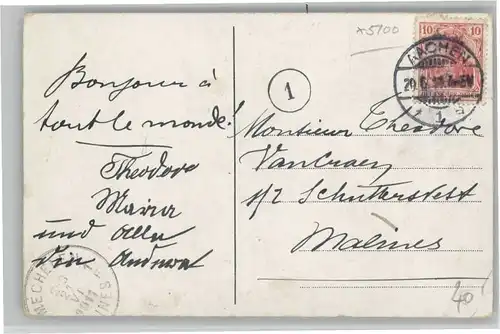 x5100
10 10
AACHEN
20.6.11.7-8N
1
1
Bonjour à
tout le monde!
Theodore
Maria
und Alle
Monsieur Theodore
VanCraey
Malines
MECHELEN
1911
MALINES
40